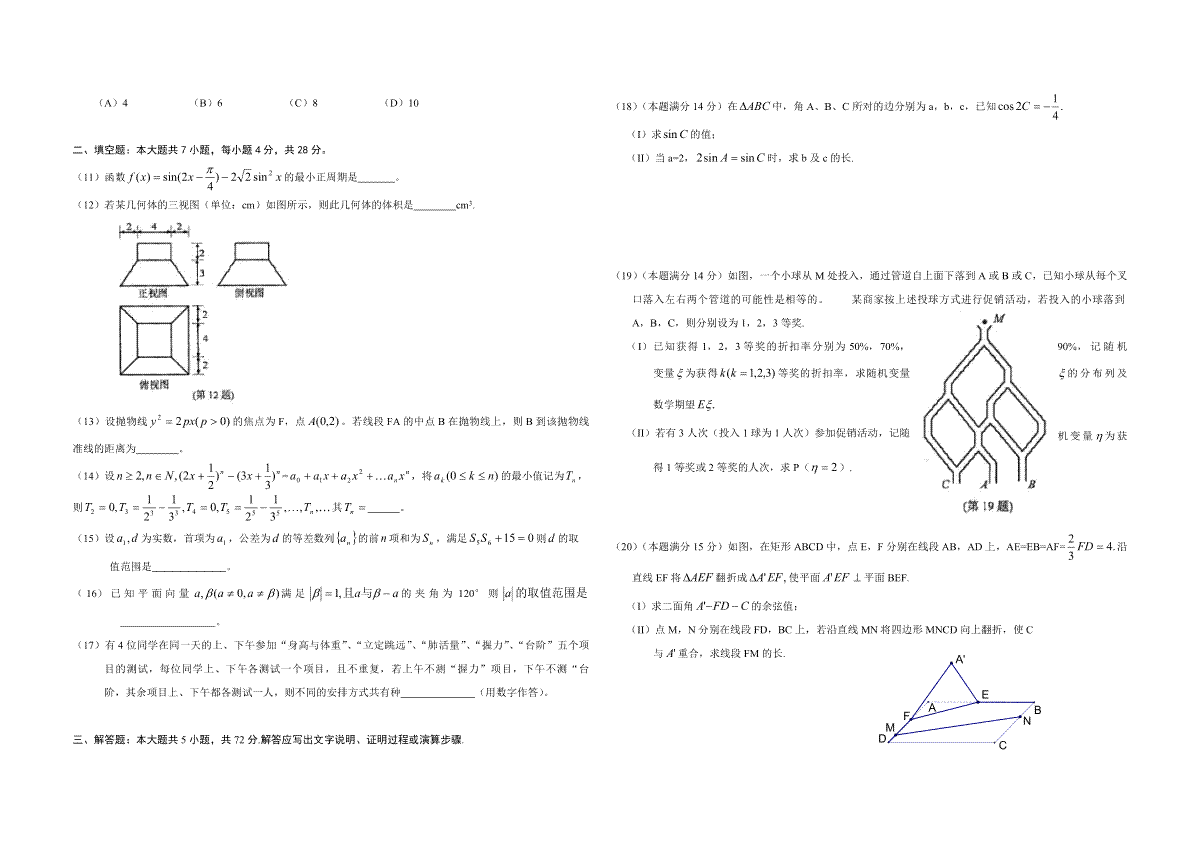 （A）4 （B）6 （C）8 （D）10
二、填空题：本大题共7小题，每小题4分，共28分。
（11）函数 f(x) = sin(2x − π/4) − 2√2 sin² x 的最小正周期是_______。
（12）若某几何体的三视图（单位：cm）如图所示，则此几何体的体积是________cm³.
2 4 2
2
3
正视图 侧视图
2
4
2
俯视图
(第12题)
（13）设抛物线 y² = 2px(p > 0) 的焦点为F，点 A(0,2) 。若线段FA的中点B在抛物线上，则B到该抛物线
准线的距离为________。
（14）设 n ≥ 2, n ∈ N, (2x + 1/2)ⁿ − (3x + 1/3)ⁿ = a₀ + a₁x + a₂x² + …aₙxⁿ ，将 aₖ(0 ≤ k ≤ n) 的最小值记为 Tₙ ，
则 T₂ = 0, T₃ = 1/2³ − 1/3³ , T₄ = 0, T₅ = 1/2⁵ − 1/3⁵ ,…, Tₙ ,… 其 Tₙ = ______。
（15）设 a₁, d 为实数，首项为 a₁ ，公差为 d 的等差数列 {aₙ} 的前 n 项和为 Sₙ ，满足 S₅S₆ + 15 = 0 则 d 的取
值范围是______________。
（16）已知平面向量 a, β(a ≠ 0, a ≠ β) 满足 |β| = 1, 且a与β − a 的夹角为120° 则 |a| 的取值范围是
__________________。
（17）有4位同学在同一天的上、下午参加“身高与体重”、“立定跳远”、“肺活量”、“握力”、“台阶”五个项
目的测试，每位同学上、下午各测试一个项目，且不重复，若上午不测“握力”项目，下午不测“台
阶，其余项目上、下午都各测试一人，则不同的安排方式共有种______________（用数字作答）。
三、解答题：本大题共5小题，共72分.解答应写出文字说明、证明过程或演算步骤.
（18）（本题满分14分）在 ΔABC 中，角A、B、C所对的边分别为a，b，c，已知 cos 2C = −1/4 .
（I）求 sin C 的值；
（II）当a=2， 2sin A = sin C 时，求b及c的长.
（19）（本题满分14分）如图，一个小球从M处投入，通过管道自上面下落到A或B或C，已知小球从每个叉
口落入左右两个管道的可能性是相等的。 某商家按上述投球方式进行促销活动，若投入的小球落到
A，B，C，则分别设为1，2，3等奖.
（I）已知获得1，2，3等奖的折扣率分别为50%，70%， 90%，记随机
变量 ξ 为获得 k(k = 1,2,3) 等奖的折扣率，求随机变量 ξ 的分布列及
数学期望 Eξ.
（II）若有3人次（投入1球为1人次）参加促销活动，记随 机变量 η 为获
得1等奖或2等奖的人次，求P（η = 2）.
M
C A B
(第19题)
（20）（本题满分15分）如图，在矩形ABCD中，点E，F分别在线段AB，AD上，AE=EB=AF= 2/3 FD = 4. 沿
直线EF将 ΔAEF 翻折成 ΔA'EF, 使平面 A'EF ⊥ 平面BEF.
（I）求二面角 A'−FD − C 的余弦值；
（II）点M，N分别在线段FD，BC上，若沿直线MN将四边形MNCD向上翻折，使C
与 A' 重合，求线段FM的长.
A'
E
A
B
F
N
M
D
C